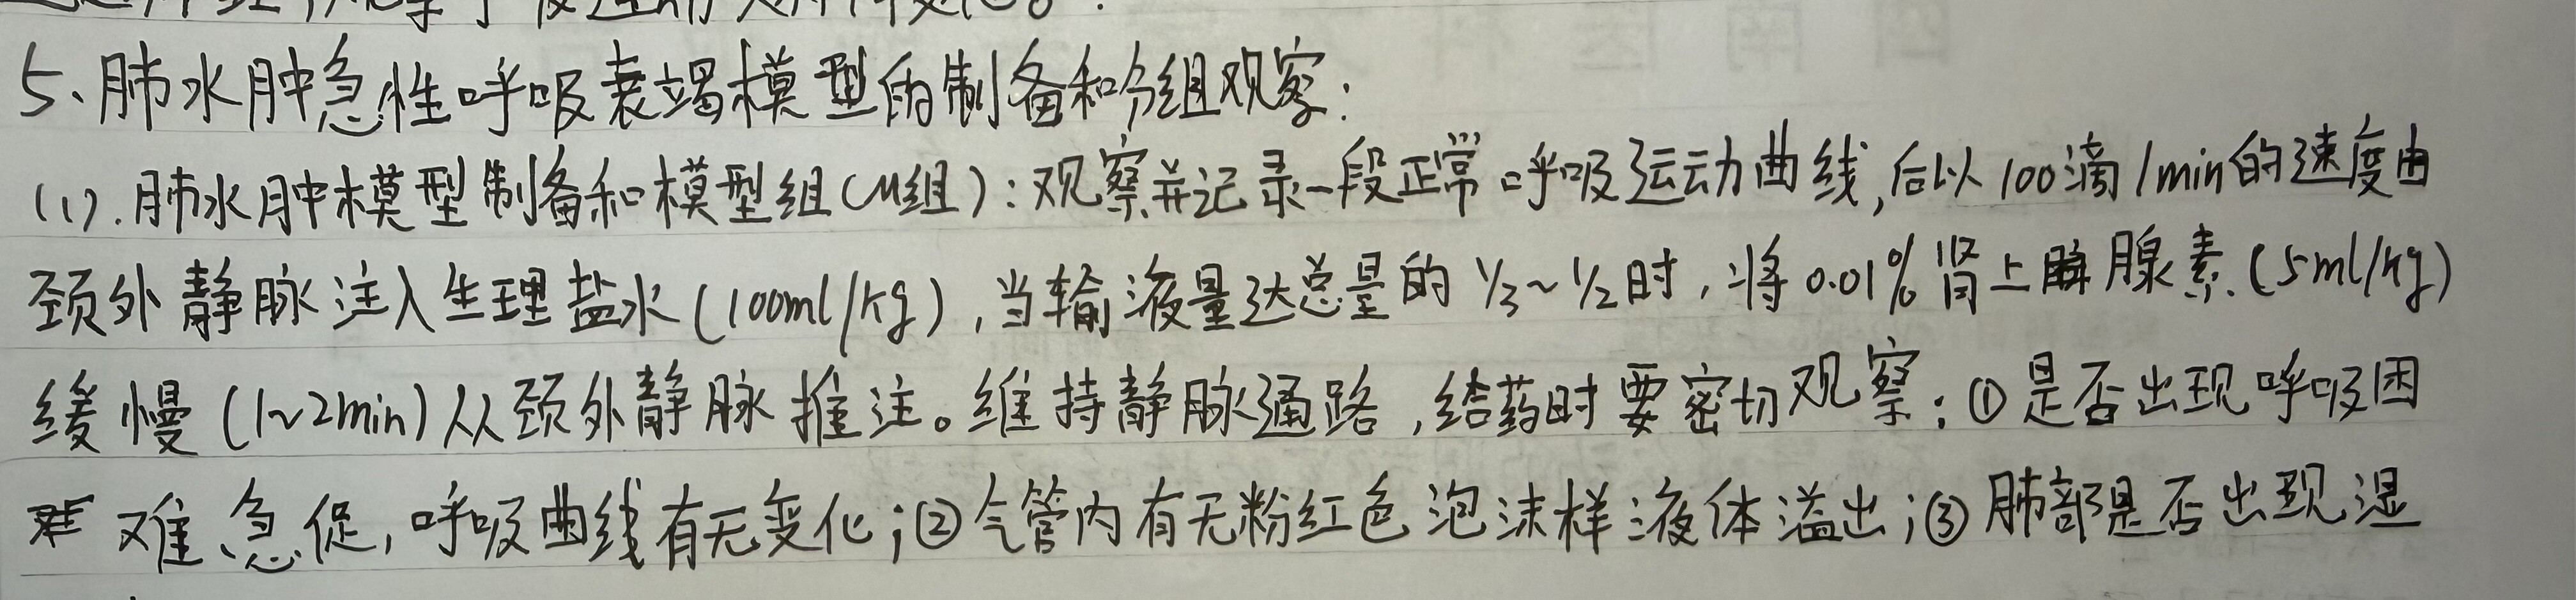 5、肺水肿急性呼吸衰竭模型的制备和分组观察：
(1).肺水肿模型制备和模型组(M组)：观察并记录一段正常呼吸运动曲线,后以100滴/min的速度由
颈外静脉注入生理盐水(100ml/kg),当输液量达总量的1/3~1/2时,将0.01%肾上腺素.(5ml/kg)
缓慢(1~2min)从颈外静脉推注。维持静脉通路,给药时要密切观察:①是否出现呼吸困
难、急促,呼吸曲线有无变化;②气管内有无粉红色泡沫样液体溢出;③肺部是否出现湿